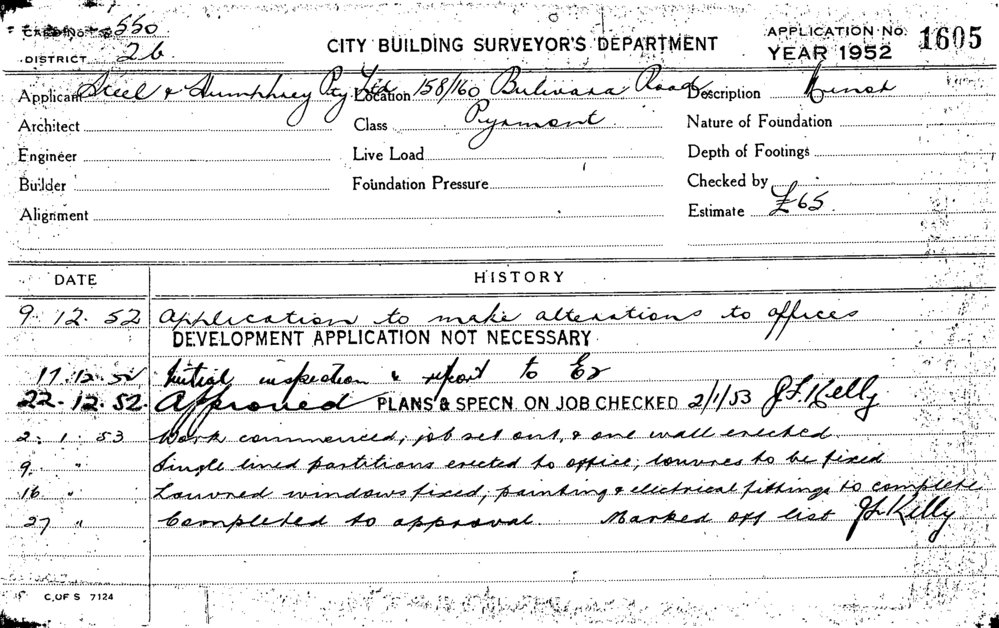 CARD No. 550
DISTRICT 26
CITY BUILDING SURVEYOR'S DEPARTMENT
APPLICATION No. 1605
YEAR 1952
Applicant Steel & Humphrey Pty Ltd Location 158/160 Bulwara Road Description Minor
Architect Class Pyrmont Nature of Foundation
Engineer Live Load Depth of Footings
Builder Foundation Pressure Checked by
Alignment Estimate £65
DATE HISTORY
9. 12. 52 Application to make alterations to offices
DEVELOPMENT APPLICATION NOT NECESSARY
17.12.52 Initial inspection & report to
22.12.52. Approved PLANS & SPECN. ON JOB CHECKED 2/1/53 J.F. Kelly
2. 1. 53 Work commenced; job set out, & one wall erected.
9 " Single lined partitions erected to office; louvres to be fixed
16 " Louvred windows fixed; painting & electrical fittings to complete
27 " Completed to approval. Marked off list JF Kelly
C. OF S 7124